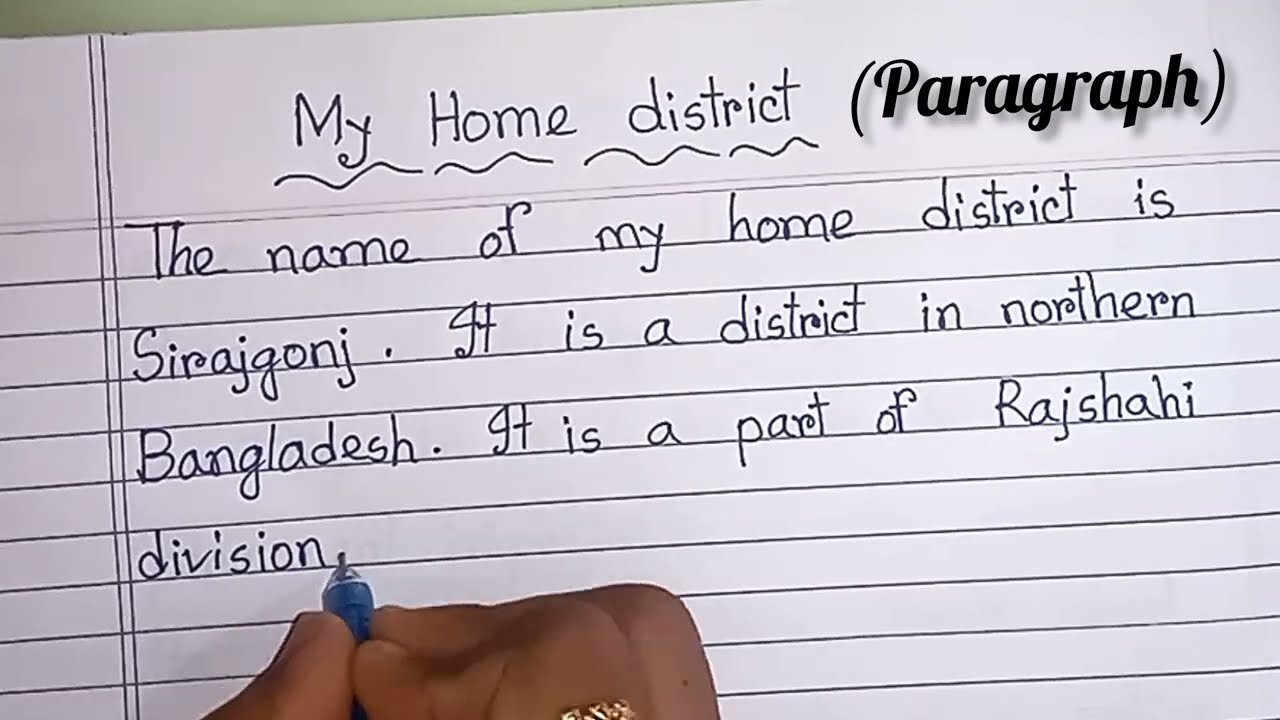 My Home district (Paragraph)
The name of my home district is
Sirajgonj. It is a district in northern
Bangladesh. It is a part of Rajshahi
division.